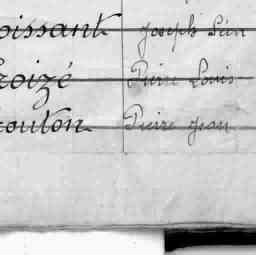 oissant Joseph
roizé Pierre Louis
routon Pierre Jean